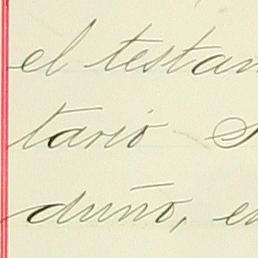 el testam
tario S
duño, en